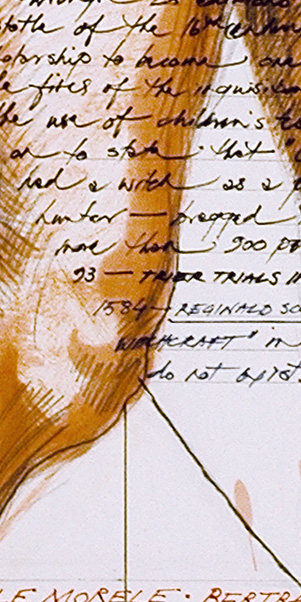 stotle of the 16th century
olarship to become one
e fires of the inquisitio
he use of children's te
on to state that "
had a witch as a
hunter — bragged
more than 900 pe
93 — TRIER TRIALS I
1584 — REGINALD SC
WITCHCRAFT" in
do not exist
LE MORELE · BERTRA